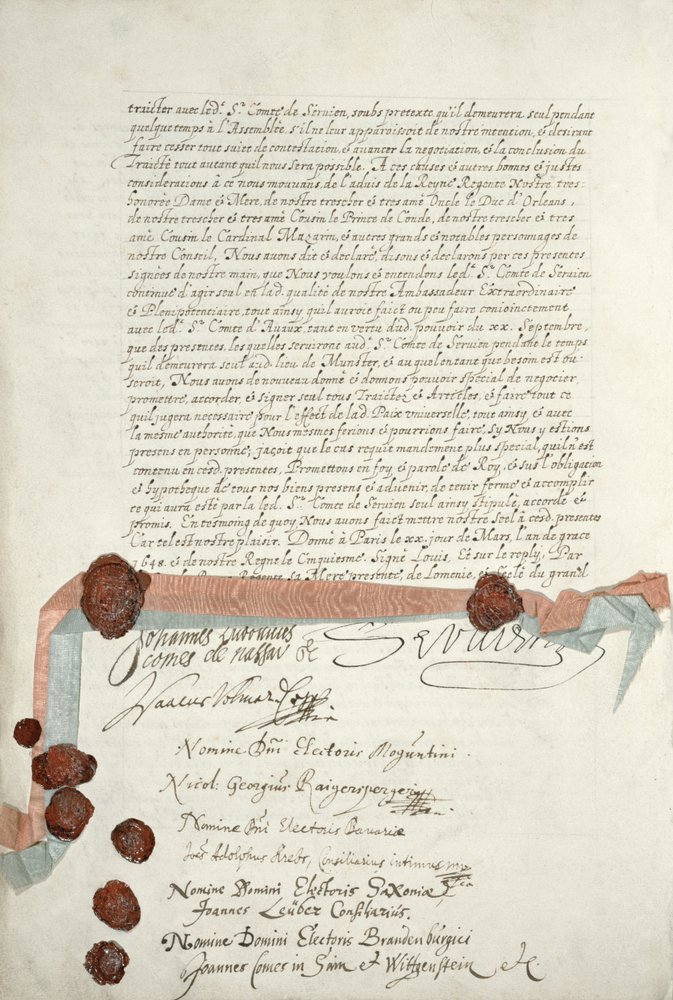 traicter avec led.t S.r Comte de Servien, soubs pretexte qu'il demeurera seul pendant
quelque temps à l'Assemblée, s'il ne leur apparoissoit de nostre intention, & desirant
faire cesser tout sujet de contestation, & avancer la negociation, & la conclusion du
Traicté tout autant qu'il nous sera possible. A ces causes & autres bonnes & justes
considerations à ce nous mouvans, de l'aduis de la Reyne Regente Nostre tres-
honorée Dame & Mere, de nostre trescher & tres amé Oncle le Duc d'Orleans,
de nostre trescher & tres amé Cousin le Prince de Condé, de nostre trescher & tres
amé Cousin le Cardinal Mazarin, & autres grands & notables personnages de
nostre Conseil, Nous avons dit & declaré, disons & declarons per ces presentes
signées de nostre main, que Nous voulons & entendons led.t S.r Comte de Servien
continue d'agir seul en lad. qualité de nostre Ambassadeur Extraordinaire
& Plenipotenciaire, tout ainsy qu'il auroit faict ou peu faire conjoinctement
avec led.t S.r Comte d'Avaux, tant en vertu dud. pouvoir du xx. Septembre,
que des presentes, lesquelles serviront aud. S.r Comte de Servien pendant le temps
qu'il demeurera seul aud. lieu de Munster, & auquel en tant que besoin est ou
seroit, Nous avons de nouveau donné & donnons pouvoir special de negocier,
promettre, accorder, & signer seul tous Traictez & Articles, & faire tout ce
qu'il jugera necessaire pour l'effect de lad. Paix universelle, tout ainsy, & avec
la mesme authorité, que Nous mesmes ferions & pourrions faire, sy Nous y estions
presens en personne, jaçoit que le cas requit mandement plus special, qu'il n'est
contenu en cesd. presentes, Promettons en foy & parole de Roy, & sus l'obligation
& hypotheque de tous nos biens presens & advenir, de tenir ferme & accomplir
ce qui aura esté par la led. S.r Comte de Servien seul ainsy stipulé, accordé &
promis. En tesmoing de quoy, Nous avons faict mettre nostre Seel à cesd. presentes
Car tel est nostre plaisir. Donné à Paris le xx. jour de Mars, l'an de grace
1648. & de nostre Regne le Cinquiesme. Signé Louis, Et sur le reply, Par
Regente sa Mere presente, de Lomenie, & Seelé du grand
Johannes Ludovicus
comes de nassau &c
Servien
Isaacus Volmar
Nomine Dñi Electoris Moguntini.
Nicol: Georgius Raigersperger
Nomine Dñi Electoris Bavariæ
Joés Adolphus Krebs, Consiliarius intimus
Nomine Domini Electoris Saxoniæ
Joannes Leüber Consiliarius.
Nomine Domini Electoris Brandenburgici
Joannes Comes in Sain et Wittgenstein etc.